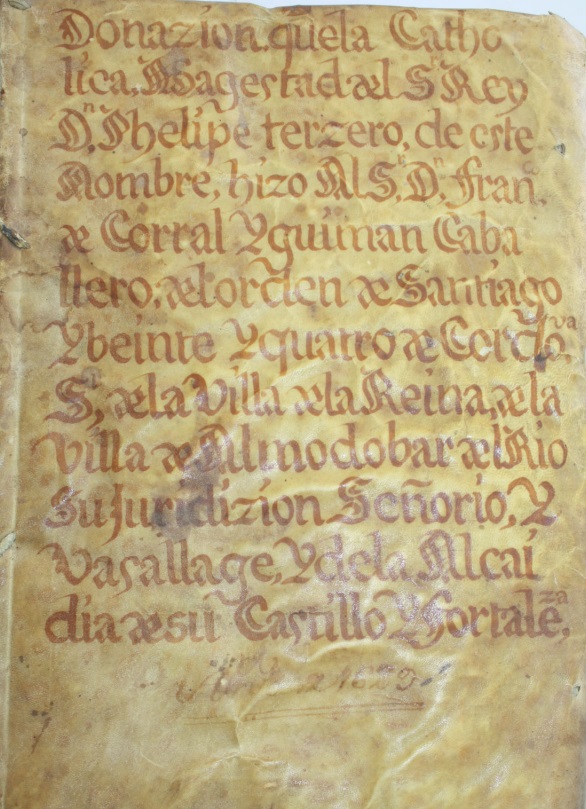 Donazion. quela Catho
lica, Magestad del S.r Rey
D.n Phelipe terzero, de este
Nombre, hizo Al S.r D.n Fran.co
de Corral Yguzman Caba
llero, del orden de Santiago
Ybeinte Yquatro de Cordo.va
S.r, de la Villa de la Reina, de la
Villa de Almodobar del Rio
Su Juridizion Señorio, Y
Vasallage, Y de la Alcai
dia de su Castillo Yfortale.za